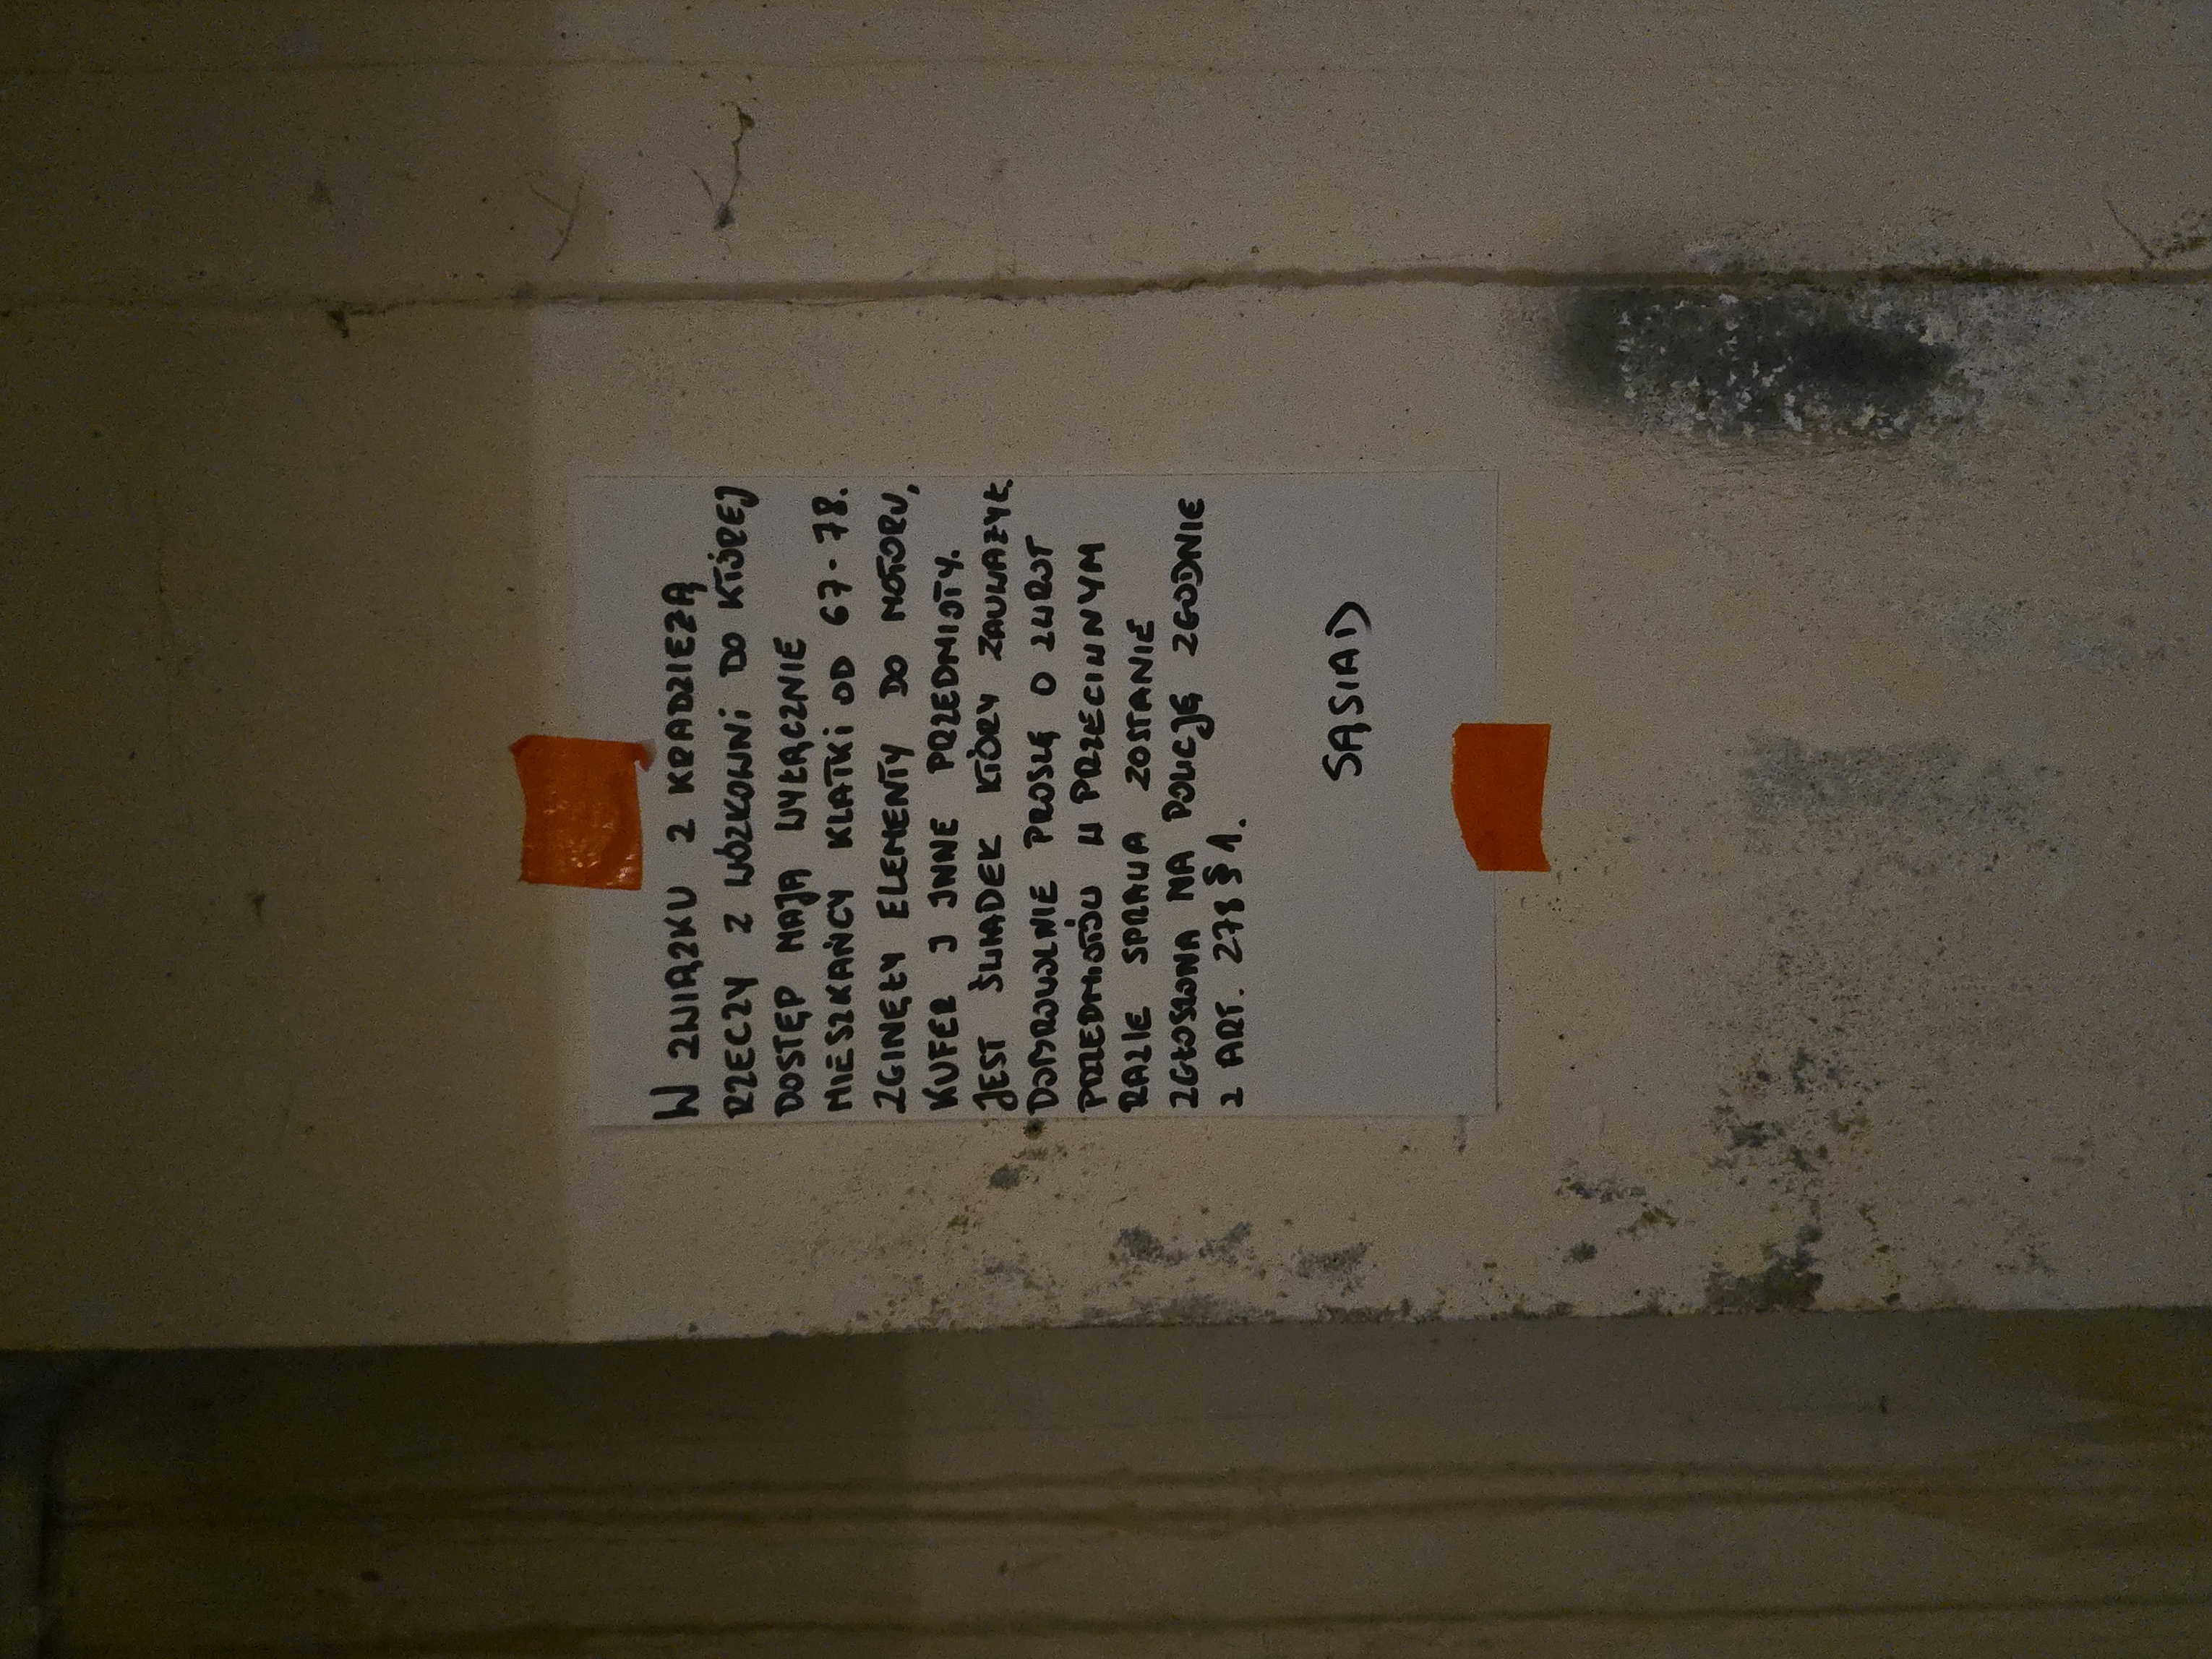 W ZWIĄZKU Z KRADZIEŻĄ
RZECZY Z WÓZKOWNI DO KTÓREJ
DOSTĘP MAJĄ WYŁĄCZNIE
MIESZKAŃCY KLATKI OD 67-78.
ZGINĘŁY ELEMENTY DO MOTORU,
KUFER I INNE PRZEDMIOTY.
JEST ŚWIADEK KTÓRY ZAUWAŻYŁ.
DOBROWOLNIE PROSZĘ O ZWROT
PRZEDMIOTÓW W PRZECIWNYM
RAZIE SPRAWA ZOSTANIE
ZGŁOSZONA NA POLICJĘ ZGODNIE
Z ART. 278 § 1.
SĄSIAD